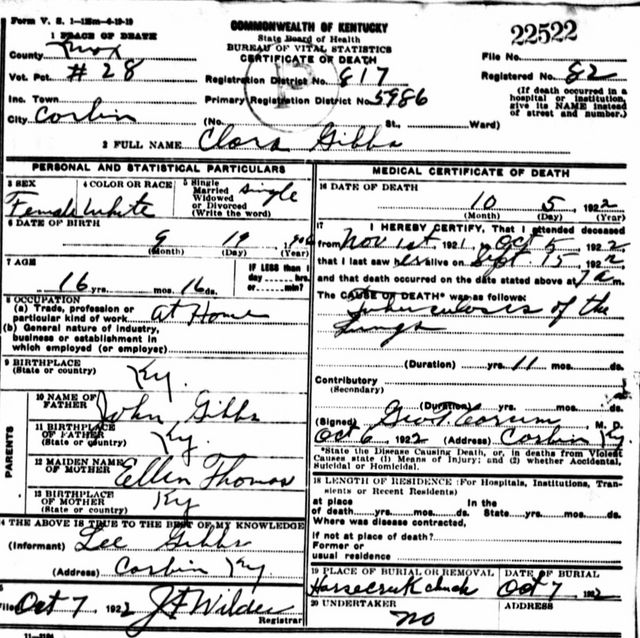 Form V. S. 1-15m-6-19-19
COMMONWEALTH OF KENTUCKY
State Board of Health
BUREAU OF VITAL STATISTICS
CERTIFICATE OF DEATH
22522
1 PLACE OF DEATH
County Knox
Vot. Pct. #28
Inc. Town
City Corbin
Registration District No. 817
Primary Registration District No. 5986
(No. St., Ward)
File No.
Registered No. 82
(If death occurred in a
hospital or institution,
give its NAME instead
of street and number.)
2 FULL NAME Clara Gibbs
PERSONAL AND STATISTICAL PARTICULARS
3 SEX
Female
4 COLOR OR RACE
White
5 Single
Married
Widowed
or Divorced
(Write the word)
Single
6 DATE OF BIRTH
9 19 1906
(Month) (Day) (Year)
7 AGE
16 yrs. mos. 16 ds.
IF LESS than 1
day hrs.
or min?
8 OCCUPATION
(a) Trade, profession or
particular kind of work at Home
(b) General nature of industry,
business or establishment in
which employed (or employer)
9 BIRTHPLACE
(State or country) Ky.
PARENTS
10 NAME OF
FATHER John Gibbs
11 BIRTHPLACE
OF FATHER
(State or country) Ky.
12 MAIDEN NAME
OF MOTHER Ellen Thomas
13 BIRTHPLACE
OF MOTHER
(State or country) Ky
14 THE ABOVE IS TRUE TO THE BEST OF MY KNOWLEDGE
(Informant) Lee Gibbs
(Address) Corbin Ky.
Filed Oct 7 1922 J F Wilder
Registrar
11-3194
MEDICAL CERTIFICATE OF DEATH
16 DATE OF DEATH
10 5 1922
(Month) (Day) (Year)
17 I HEREBY CERTIFY, That I attended deceased
from Nov 1st 1921, to Oct 5 1922
that I last saw her alive on Sept. 15 1922
and that death occurred on the date stated above at 7 a m.
The CAUSE OF DEATH* was as follows:
Tuberculosis of the
Lungs
(Duration) yrs. 11 mos. ds.
Contributory
(Secondary)
(Duration) yrs. mos. ds.
(Signed) M. D.
Oct 6 1922 (Address) Corbin Ky.
*State the Disease Causing Death, or, in deaths from Violent
Causes state (1) Means of Injury; and (2) whether Accidental,
Suicidal or Homicidal.
18 LENGTH OF RESIDENCE (For Hospitals, Institutions, Tran-
sients or Recent Residents)
at place In the
of death yrs. mos. ds. State yrs. mos. ds.
Where was disease contracted,
if not at place of death?
Former or
usual residence
19 PLACE OF BURIAL OR REMOVAL
DATE OF BURIAL
Oct 7 1922
20 UNDERTAKER
no
ADDRESS